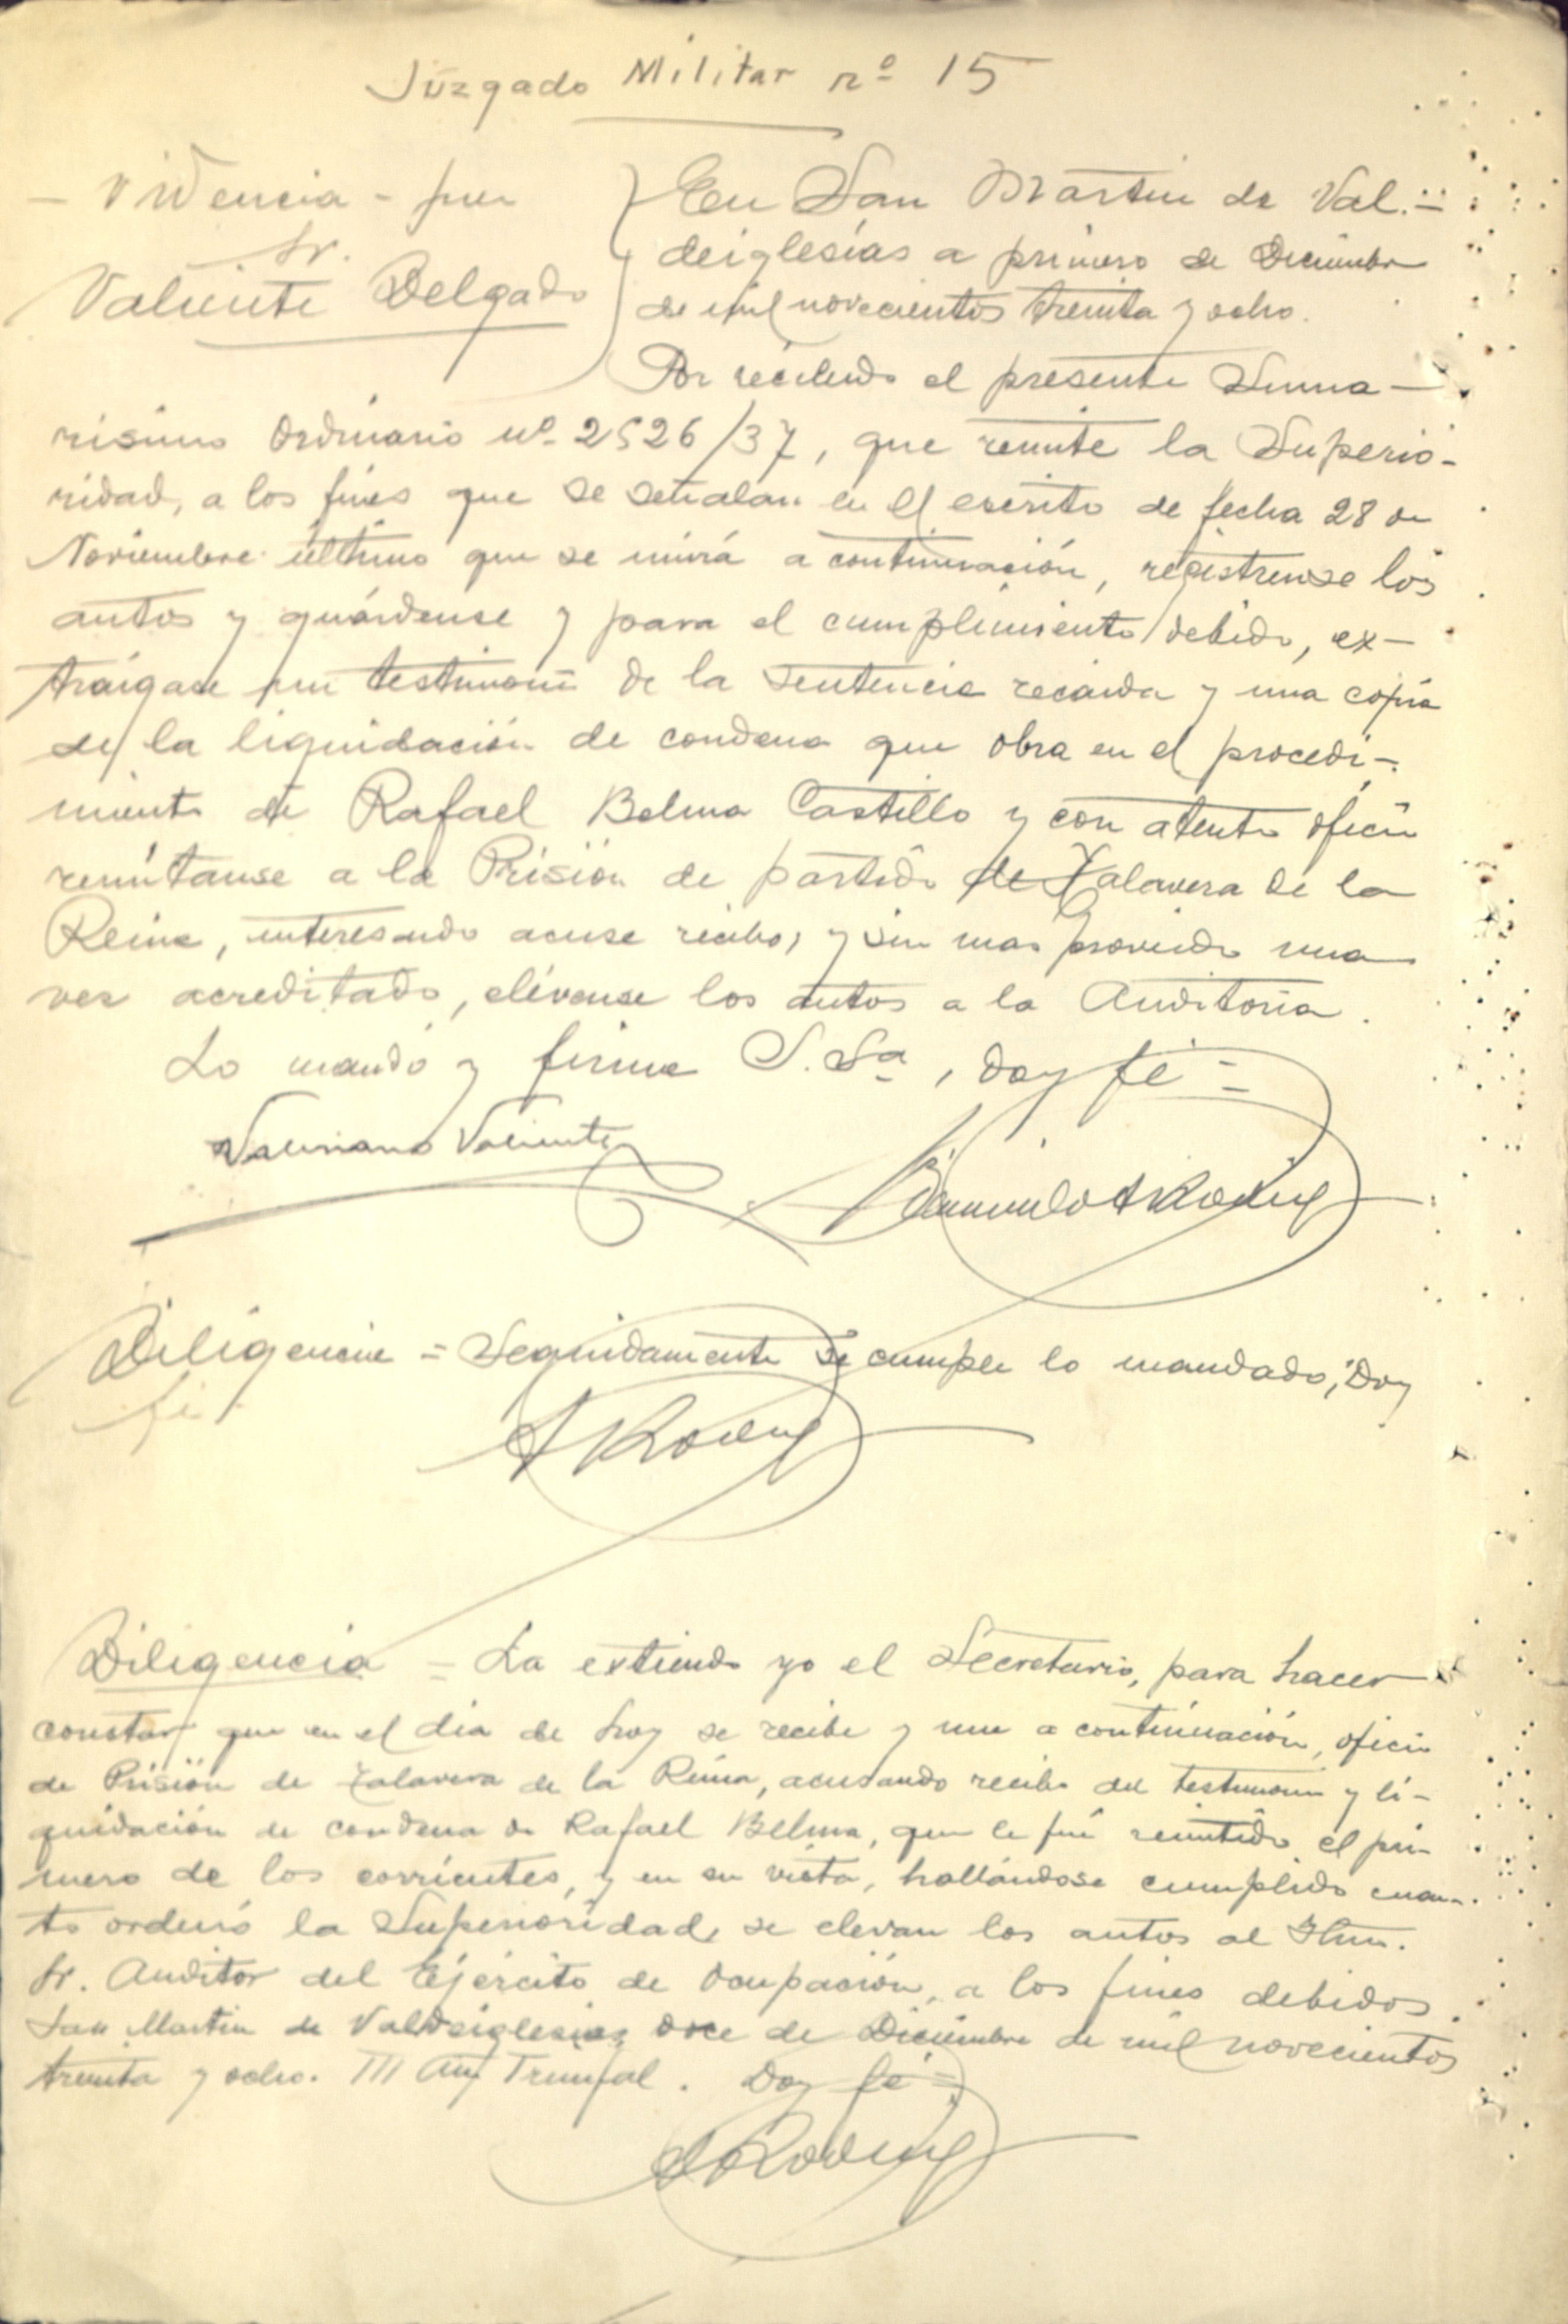 Juzgado Militar nº 15
- Videncia - Juez
Sr.
Valiente Delgado
En San Martin de Val-
deiglesias a primero de Diciembre
de mil novecientos treinta y ocho.
Por recibido el presente Suma-
risimo Ordinario nº 2526/37, que remite la Superio-
ridad, a los fines que se señalan en el escrito de fecha 28 de
Noviembre último que se unirá a continuación, registrense los
autos y guárdense y para el cumplimiento debido, ex-
traigase un testimonio de la sentencia recaida y una copia
de la liquidación de condena que obra en el procedi-
miento de Rafael Belma Castillo y con atento oficio
remítanse a la Prisión de partido de Talavera de la
Reina, interesando acuse recibo, y sin mas proveido una
vez acreditado, elévense los autos a la Auditoría.
Lo mandó y firma S. Sª, doy fé =
Valeriano Valiente
Diligencia = Seguidamente se cumple lo mandado, Doy
fé
Diligencia = La extiendo yo el Secretario, para hacer
constar que en el dia de hoy se recibe y une a continuación, oficio
de Prisión de Talavera de la Reina, acusando recibo del testimonio y li-
quidación de condena de Rafael Belma, que le fué remitido el pri-
mero de los corrientes, y en su vista, hallándose cumplido cuan-
to ordenó la Superioridad, se elevan los autos al Iltmo.
Sr. Auditor del Ejército de Ocupación, a los fines debidos.
San Martin de Valdeiglesias doce de Diciembre de mil novecientos
treinta y ocho. III Año Triunfal. Doy fé =